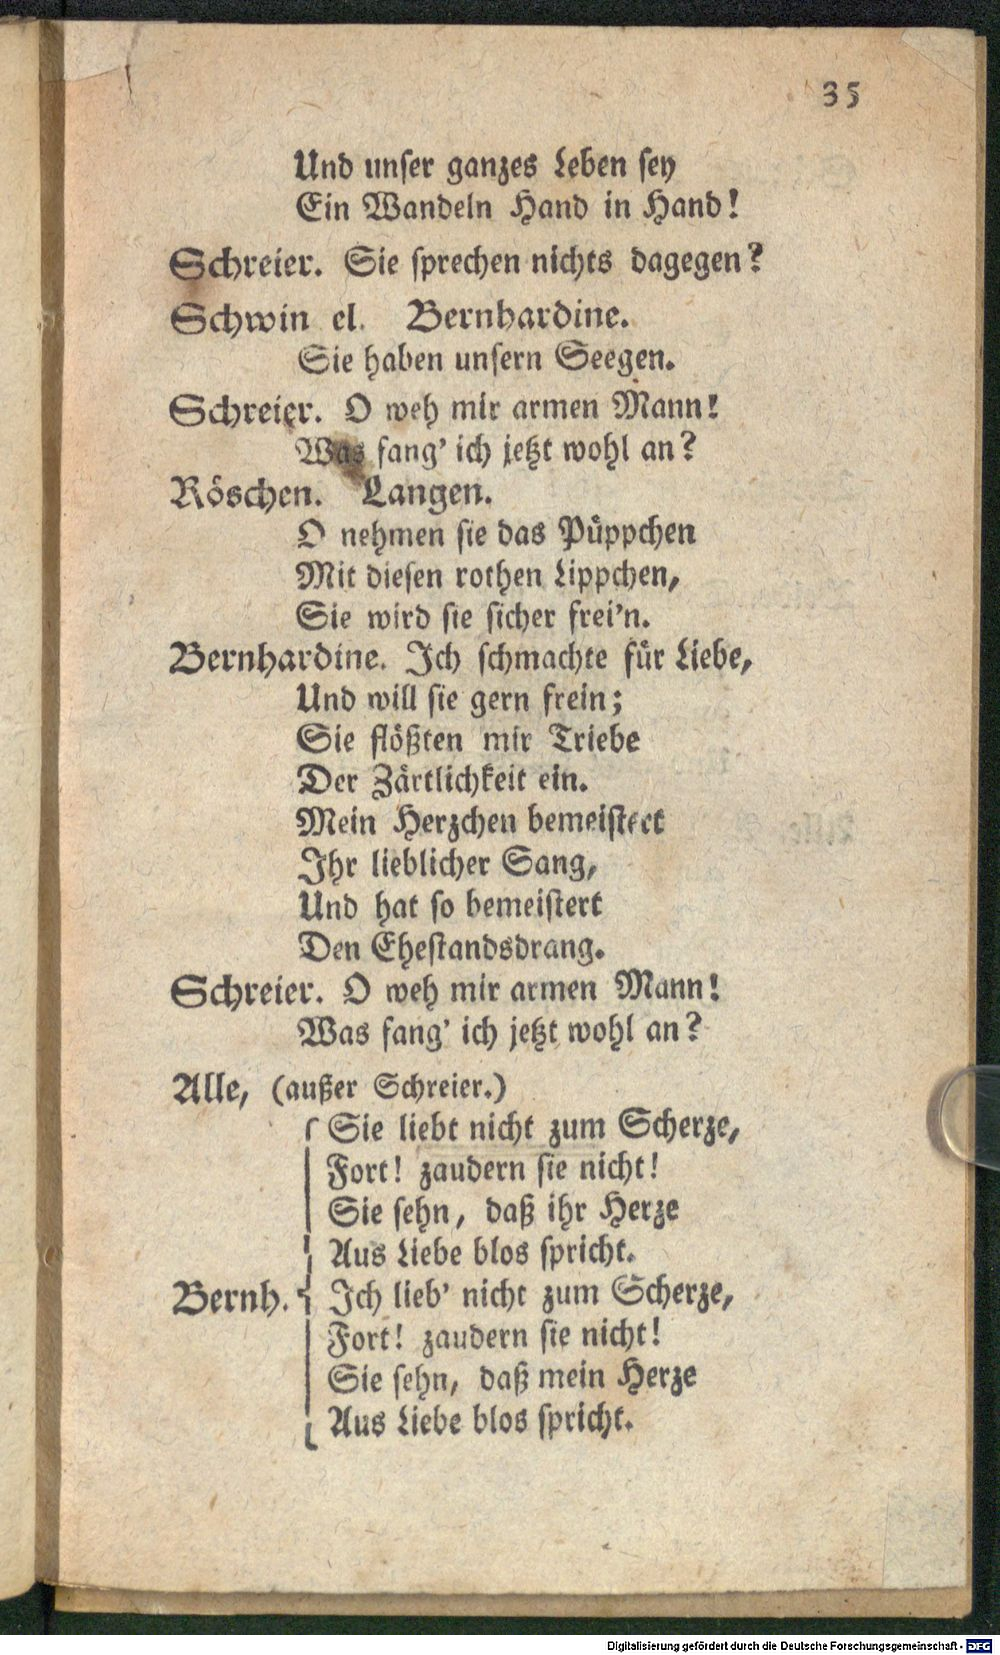 35
Und unser ganzes Leben sey
Ein Wandeln Hand in Hand!
Schreier. Sie sprechen nichts dagegen?
Schwin el. Bernhardine.
Sie haben unsern Seegen.
Schreier. O weh mir armen Mann!
Was fang' ich jetzt wohl an?
Röschen. Langen.
O nehmen sie das Püppchen
Mit diesen rothen Lippchen,
Sie wird sie sicher frei'n.
Bernhardine. Ich schmachte für Liebe,
Und will sie gern frein;
Sie flößten mir Triebe
Der Zärtlichkeit ein.
Mein Herzchen bemeistert
Ihr lieblicher Sang,
Und hat so bemeistert
Den Ehestandsdrang.
Schreier. O weh mir armen Mann!
Was fang' ich jetzt wohl an?
Alle, (außer Schreier.)
Sie liebt nicht zum Scherze,
Fort! zaudern sie nicht!
Sie sehn, daß ihr Herze
Aus Liebe blos spricht.
Bernh. Ich lieb' nicht zum Scherze,
Fort! zaudern sie nicht!
Sie sehn, daß mein Herze
Aus Liebe blos spricht.
Digitalisierung gefördert durch die Deutsche Forschungsgemeinschaft - DFG